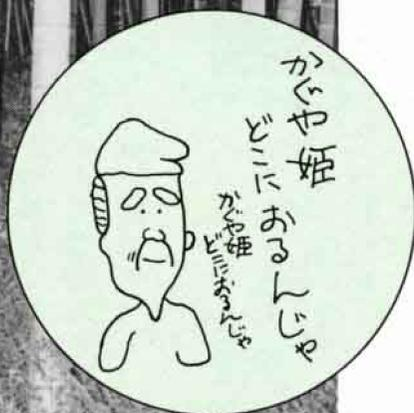 かぐや姫
どこに おるんじゃ
かぐや姫
どこにおるんじゃ